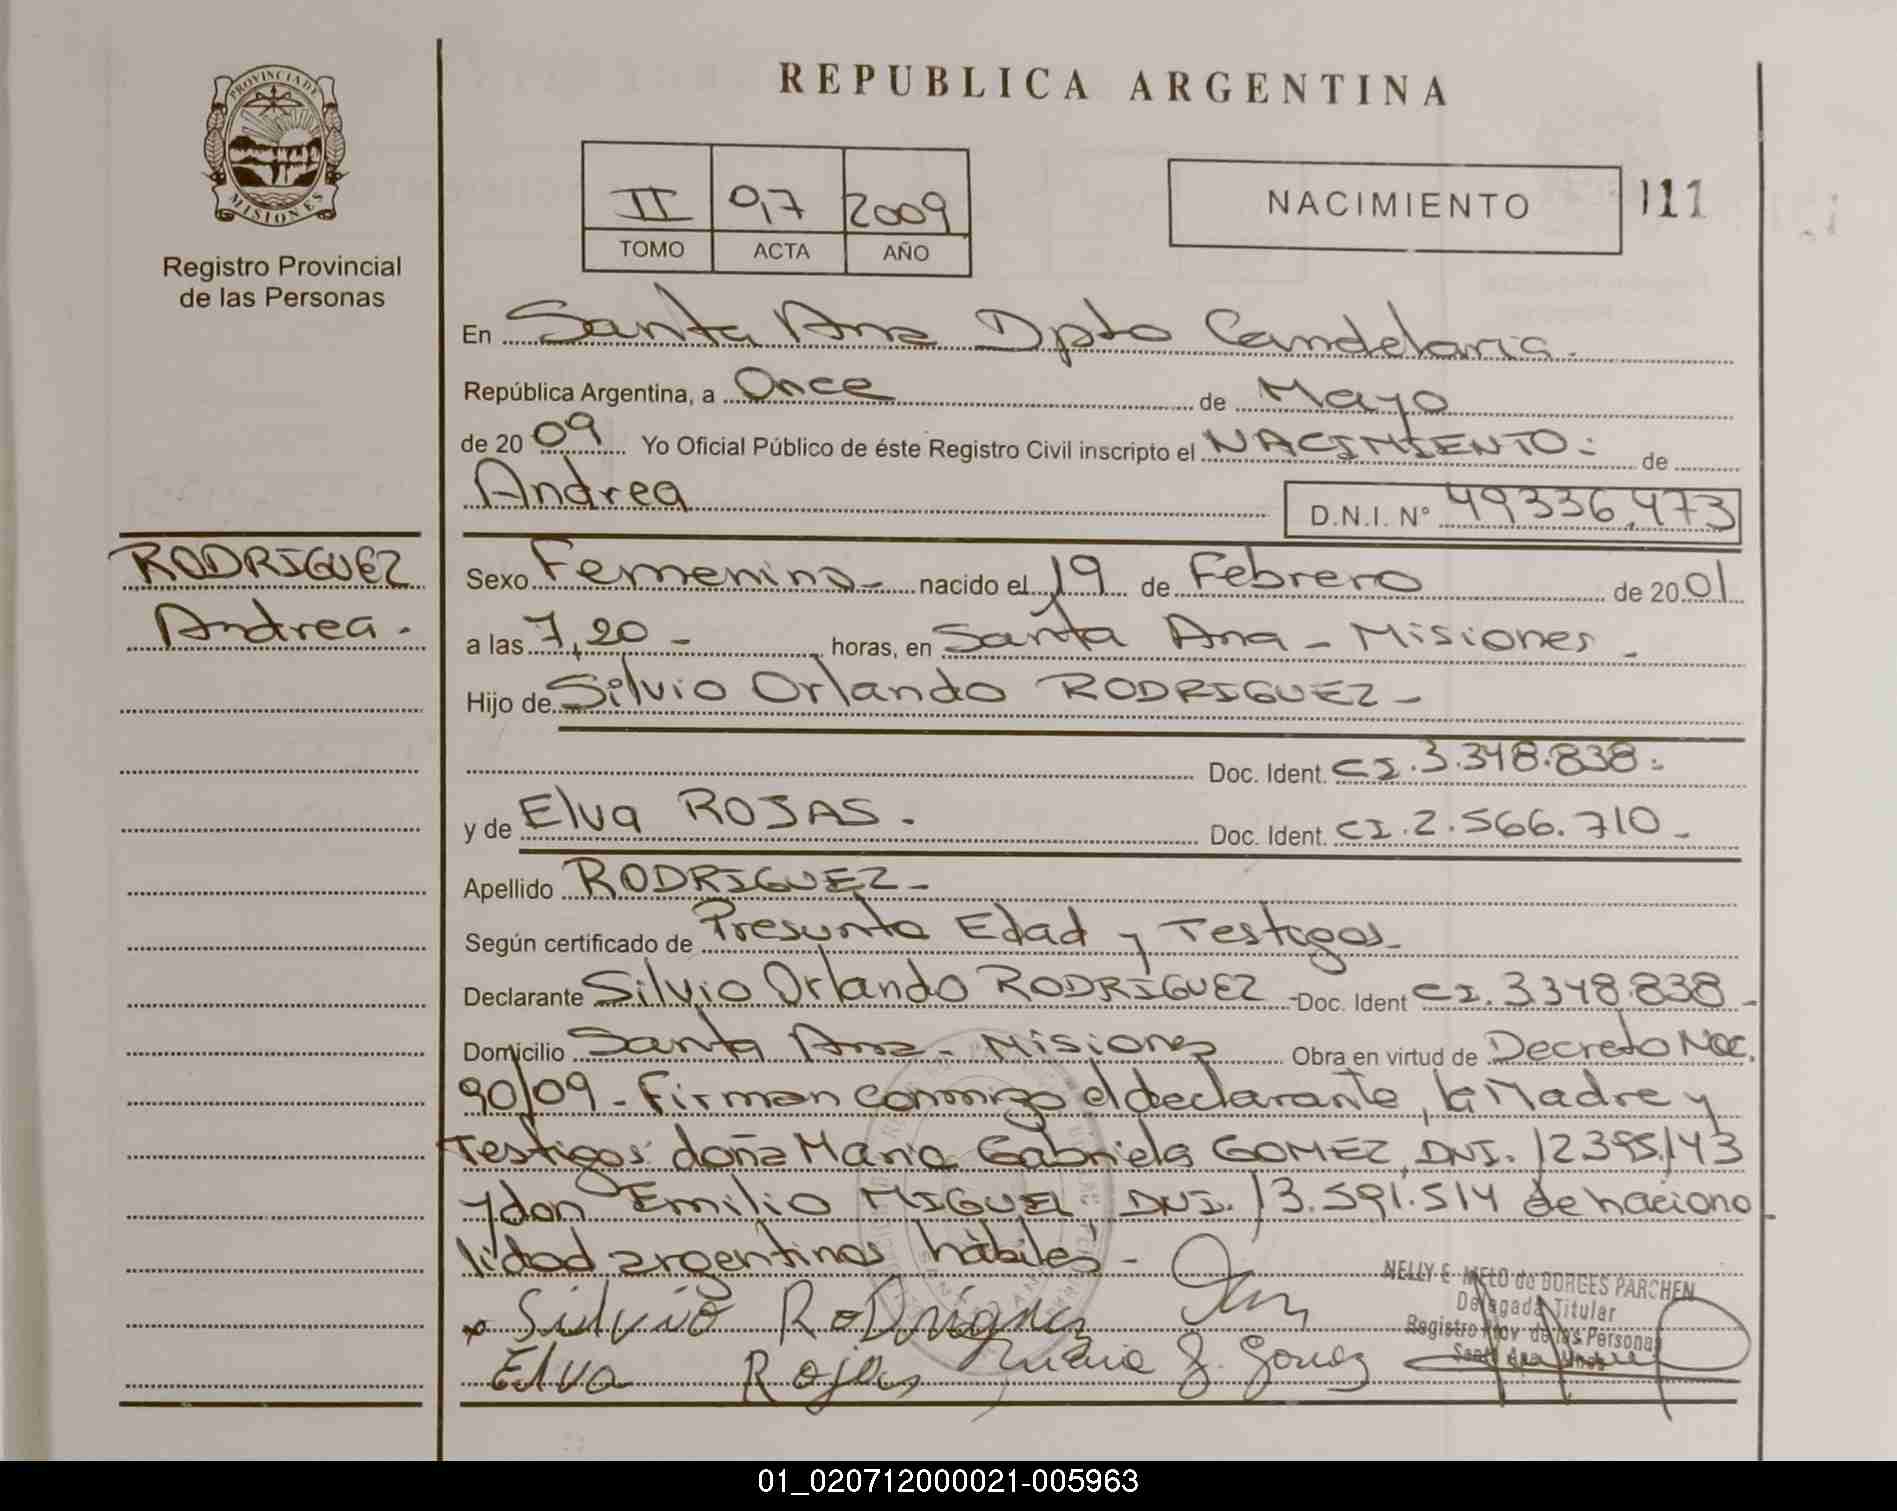 PROVINCIA DE
MISIONES
Registro Provincial
de las Personas
REPUBLICA ARGENTINA
II 0,7 2009
TOMO ACTA AÑO
NACIMIENTO 111
En Santa Ana Dpto Candelaria.
República Argentina, a Once de Mayo
de 2009 Yo Oficial Público de éste Registro Civil inscripto el NACIMIENTO: de
Andrea D.N.I. N° 49336.473
RODRIGUEZ
Andrea.
Sexo Femenino- nacido el 19 de Febrero de 2001
a las 7,20 - horas, en Santa Ana - Misiones -
Hijo de Silvio Orlando RODRIGUEZ -
Doc. Ident. CI. 3.348.838.
y de Elva ROJAS. Doc. Ident. CI. 2.566.710 -
Apellido RODRIGUEZ -
Según certificado de Presunta Edad y Testigos -
Declarante Silvio Orlando RODRIGUEZ - Doc. Ident CI. 3348.838 -
Domicilio Santa Ana - Misiones Obra en virtud de Decreto Nac.
90/09 - Firman conmigo el declarante, la Madre y
Testigos: doña Maria Gabriela GOMEZ, DNI. 12395143
y don Emilio MIGUEL DNI. 13.591.514 de naciona
lidad argentinos hábiles -
Silvio RoDriguez
Elva Rojas Maria G. Gomez
NELLY E. MELO de BORGES PARCHEN
Delegada Titular
Registro Prov de las Personas
Santa Ana Mnes
01_020712000021-005963